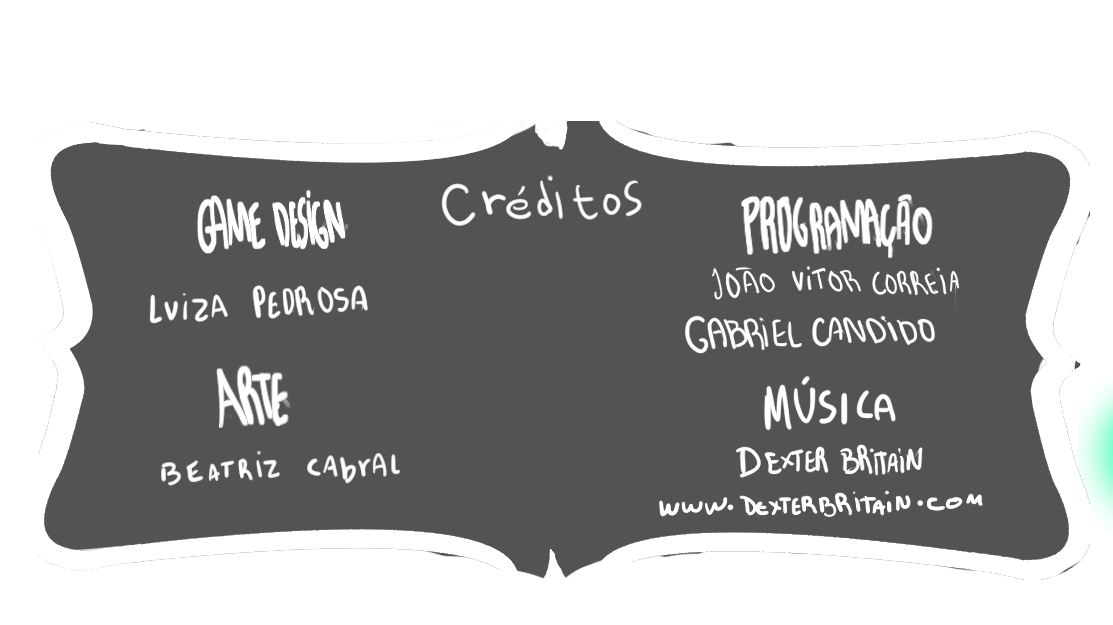 Créditos
GAME DESIGN
LUiZA PEDROSA
ARTE
BEATRiZ CAbrAL
PROGRAMAÇÃO
JOÃO ViTOR CORREiA
GABRiEL CANDiDO
MÚSICA
DEXTER BRiTAiN
www.DEXTERBRiTAiN.COM